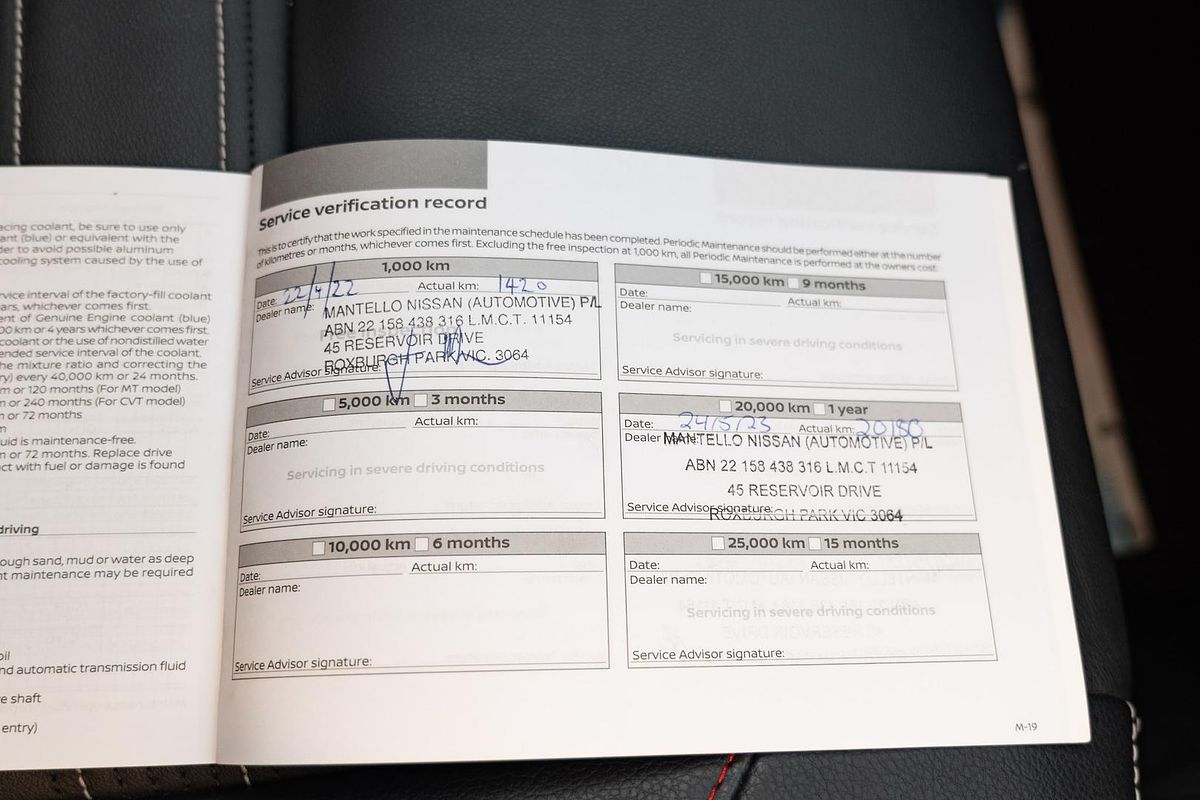 acing coolant, be sure to use only
ant (blue) or equivalent with the
der to avoid possible aluminum
cooling system caused by the use of
rvice interval of the factory-fill coolant
ars, whichever comes first.
ent of Genuine Engine coolant (blue)
00 km or 4 years whichever comes first.
coolant or the use of nondistilled water
ended service interval of the coolant.
he mixture ratio and correcting the
ry) every 40,000 km or 24 months.
m or 120 months (For MT model)
m or 240 months (For CVT model)
m or 72 months
m
luid is maintenance-free.
m or 72 months. Replace drive
ct with fuel or damage is found
driving
ough sand, mud or water as deep
nt maintenance may be required
oil
nd automatic transmission fluid
e shaft
entry)
Service verification record
This is to certify that the work specified in the maintenance schedule has been completed. Periodic Maintenance should be performed either at the number
of kilometres or months, whichever comes first. Excluding the free inspection at 1,000 km, all Periodic Maintenance is performed at the owners cost.
1,000 km
Date: 22/4/22 Actual km: 1420
Dealer name: MANTELLO NISSAN (AUTOMOTIVE) P/L
ABN 22 158 438 316 L.M.C.T. 11154
Free inspection
45 RESERVOIR DRIVE
ROXBURGH PARK VIC. 3064
Service Advisor signature:
5,000 km 3 months
Date: Actual km:
Dealer name:
Servicing in severe driving conditions
Service Advisor signature:
10,000 km 6 months
Date: Actual km:
Dealer name:
Service Advisor signature:
15,000 km 9 months
Date: Actual km:
Dealer name:
Servicing in severe driving conditions
Service Advisor signature:
20,000 km 1 year
Date: 24/5/23 Actual km: 20180
Dealer name: MANTELLO NISSAN (AUTOMOTIVE) P/L
ABN 22 158 438 316 L.M.C.T 11154
45 RESERVOIR DRIVE
Service Advisor signature:
ROXBURGH PARK VIC 3064
25,000 km 15 months
Date: Actual km:
Dealer name:
Servicing in severe driving conditions
Service Advisor signature:
M-19